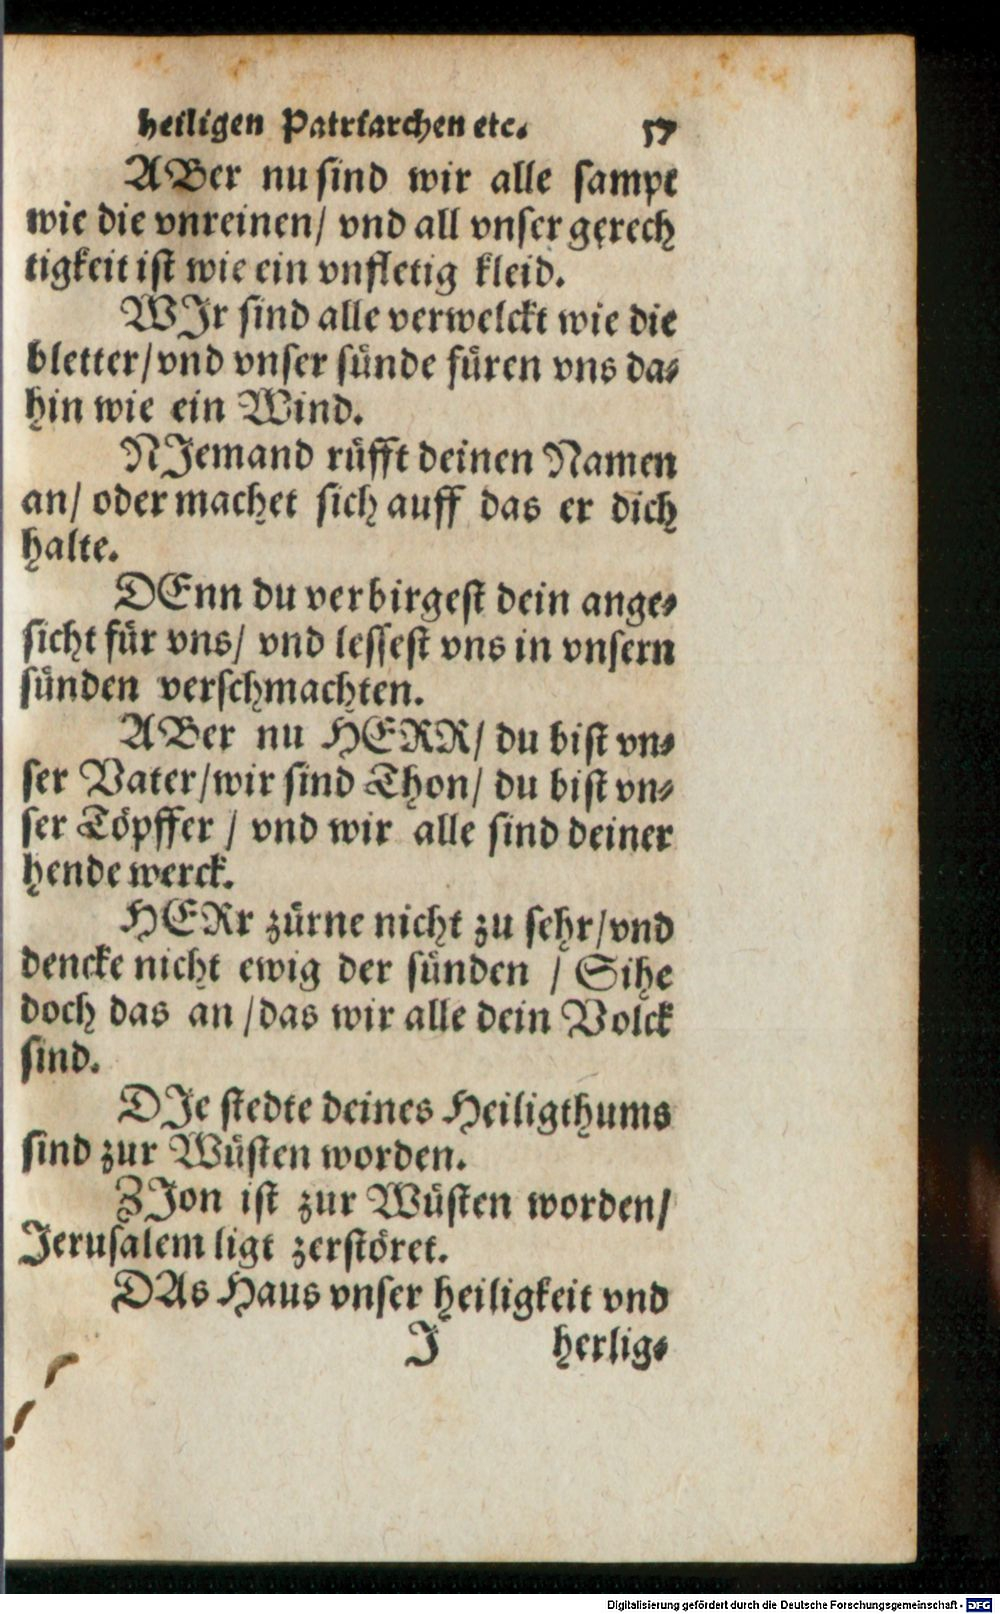 heiligen Patriarchen etc. 57
ABer nu sind wir alle sampt
wie die vnreinen/ vnd all vnser gerech
tigkeit ist wie ein vnfletig kleid.
WJr sind alle verwelckt wie die
bletter/vnd vnser sünde füren vns da⸗
hin wie ein Wind.
NJemand rüfft deinen Namen
an/ oder machet sich auff das er dich
halte.
DEnn du verbirgest dein ange⸗
sicht für vns/ vnd lessest vns in vnsern
sünden verschmachten.
ABer nu HERR/ du bist vn⸗
ser Vater/wir sind Thon/ du bist vn⸗
ser Töpffer / vnd wir alle sind deiner
hende werck.
HERr zürne nicht zu sehr/vnd
dencke nicht ewig der sünden / Sihe
doch das an /das wir alle dein Volck
sind.
DJe stedte deines Heiligthums
sind zur Wüsten worden.
ZJon ist zur Wüsten worden/
Jerusalem ligt zerstöret.
DAs Haus vnser heiligkeit vnd
J herlig⸗
Digitalisierung gefördert durch die Deutsche Forschungsgemeinschaft - DFG